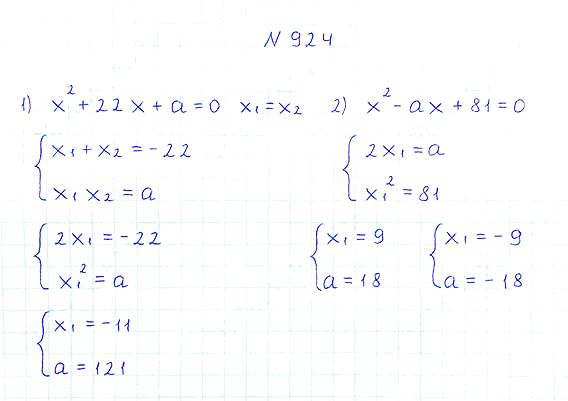 N 924
1) x² + 22x + a = 0 x₁ = x₂
x₁ + x₂ = -22
x₁ x₂ = a
2x₁ = -22
x₁² = a
x₁ = -11
a = 121
2) x² - ax + 81 = 0
2x₁ = a
x₁² = 81
x₁ = 9
a = 18
x₁ = -9
a = -18